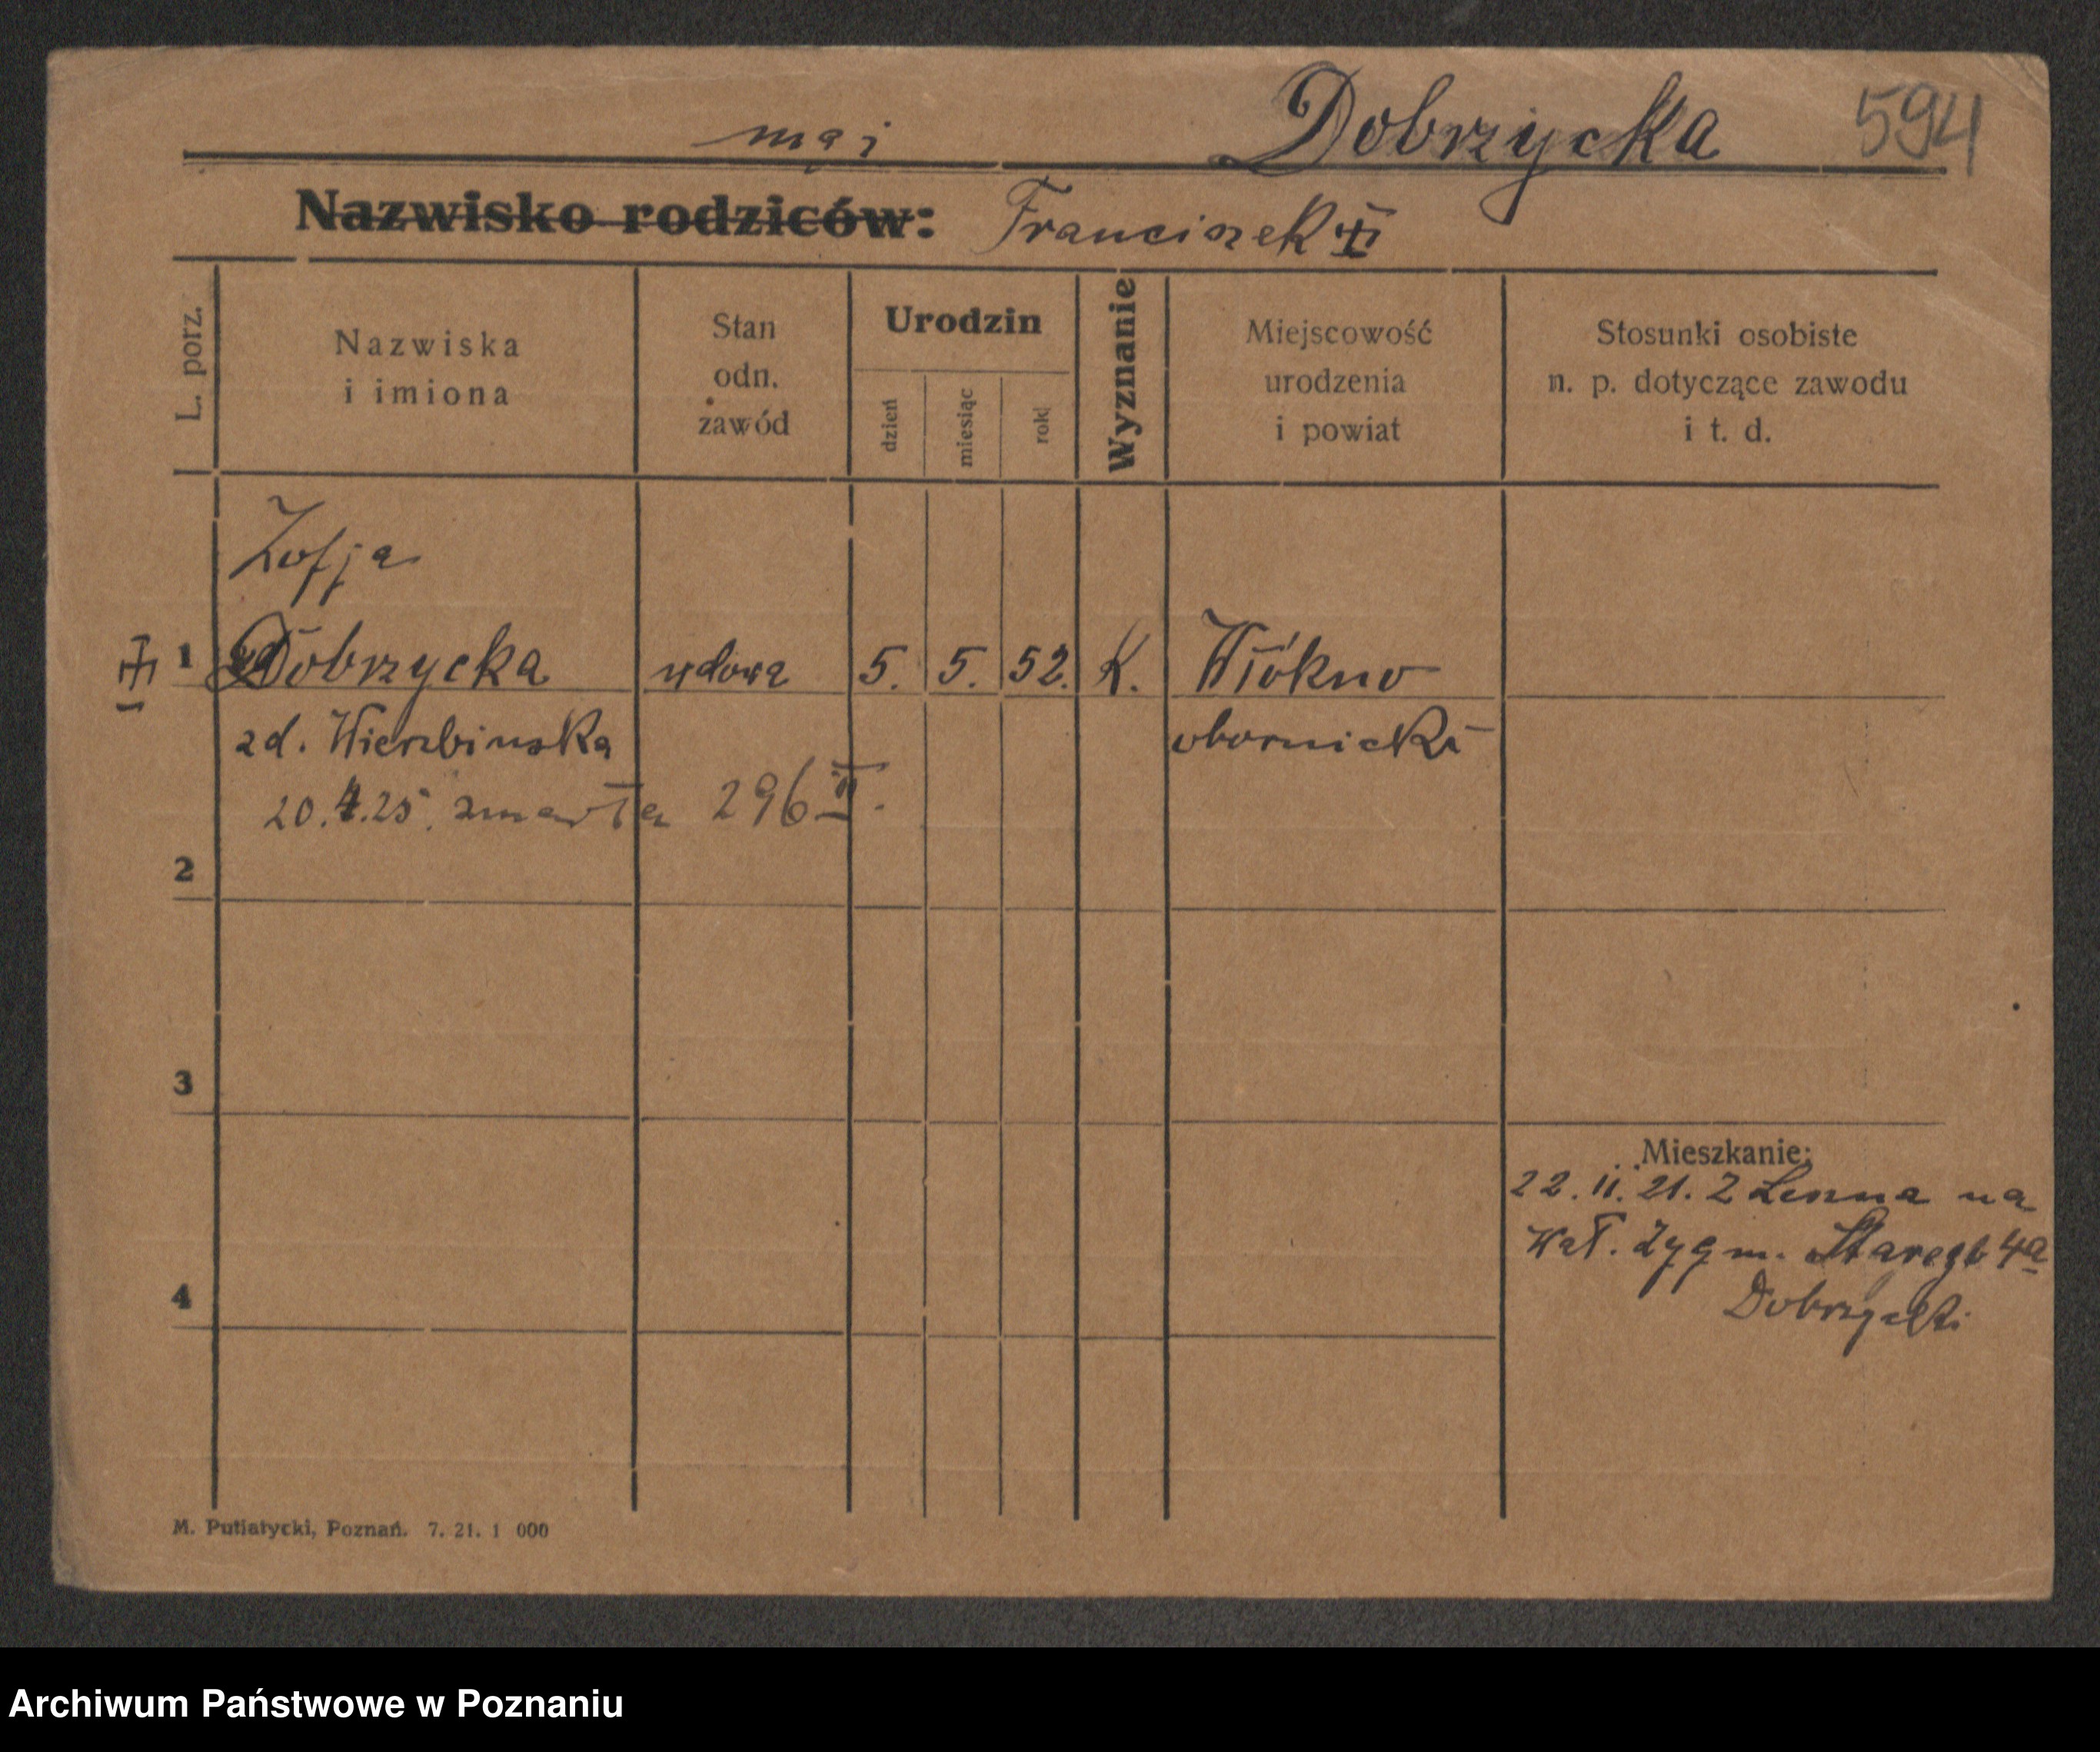 mąż Dobrzycka 594
Nazwisko rodziców: Franciszek
L. porz.
Nazwiska
i imiona
Stan
odn.
zawód
Urodzin
dzień
miesiąc
rok
Wyznanie
Miejscowość
urodzenia
i powiat
Stosunki osobiste
n. p. dotyczące zawodu
i t. d.
Zofja
1 Dobrzycka wdowa 5. 5. 52. K. Włókno
zd. Wierzbinska obornicki
20.4.25. zmarła 296 II.
2
3
Mieszkanie:
22.11.21. Z Leszna na
Wał. Zygm. Starego 4a
4
Dobrzycki
M. Putiatycki, Poznań. 7. 21. 1 000
Archiwum Państwowe w Poznaniu